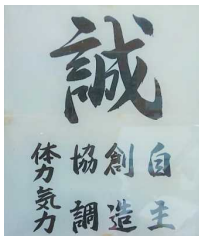 誠
自主
創造
協調
体力気力